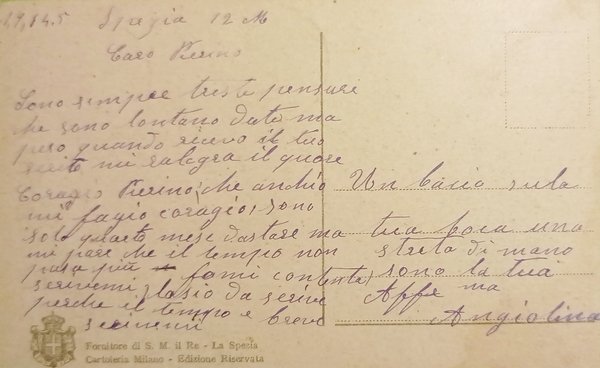 Spezia 12 M
Caro Pierino
Sono sempre triste pensare
che sono lontano date ma
pero quando ricevo il tuo
scrito mi ralegra il quore
Coragio Pierino, che anchio
mi fagio coragio, sono
solo quatro mese dastare ma
mi pare che il tempo non
pasa piu fami contenta,
scrivemi, lasio da scrive
perche il tempo e breve
scrivemi
Un bacio sula
tua boca una
streta di mano
sono la tua
Affe ma
Angiolina
Fornitore di S. M. il Re - La Spezia
Cartoleria Milano - Edizione Riservata